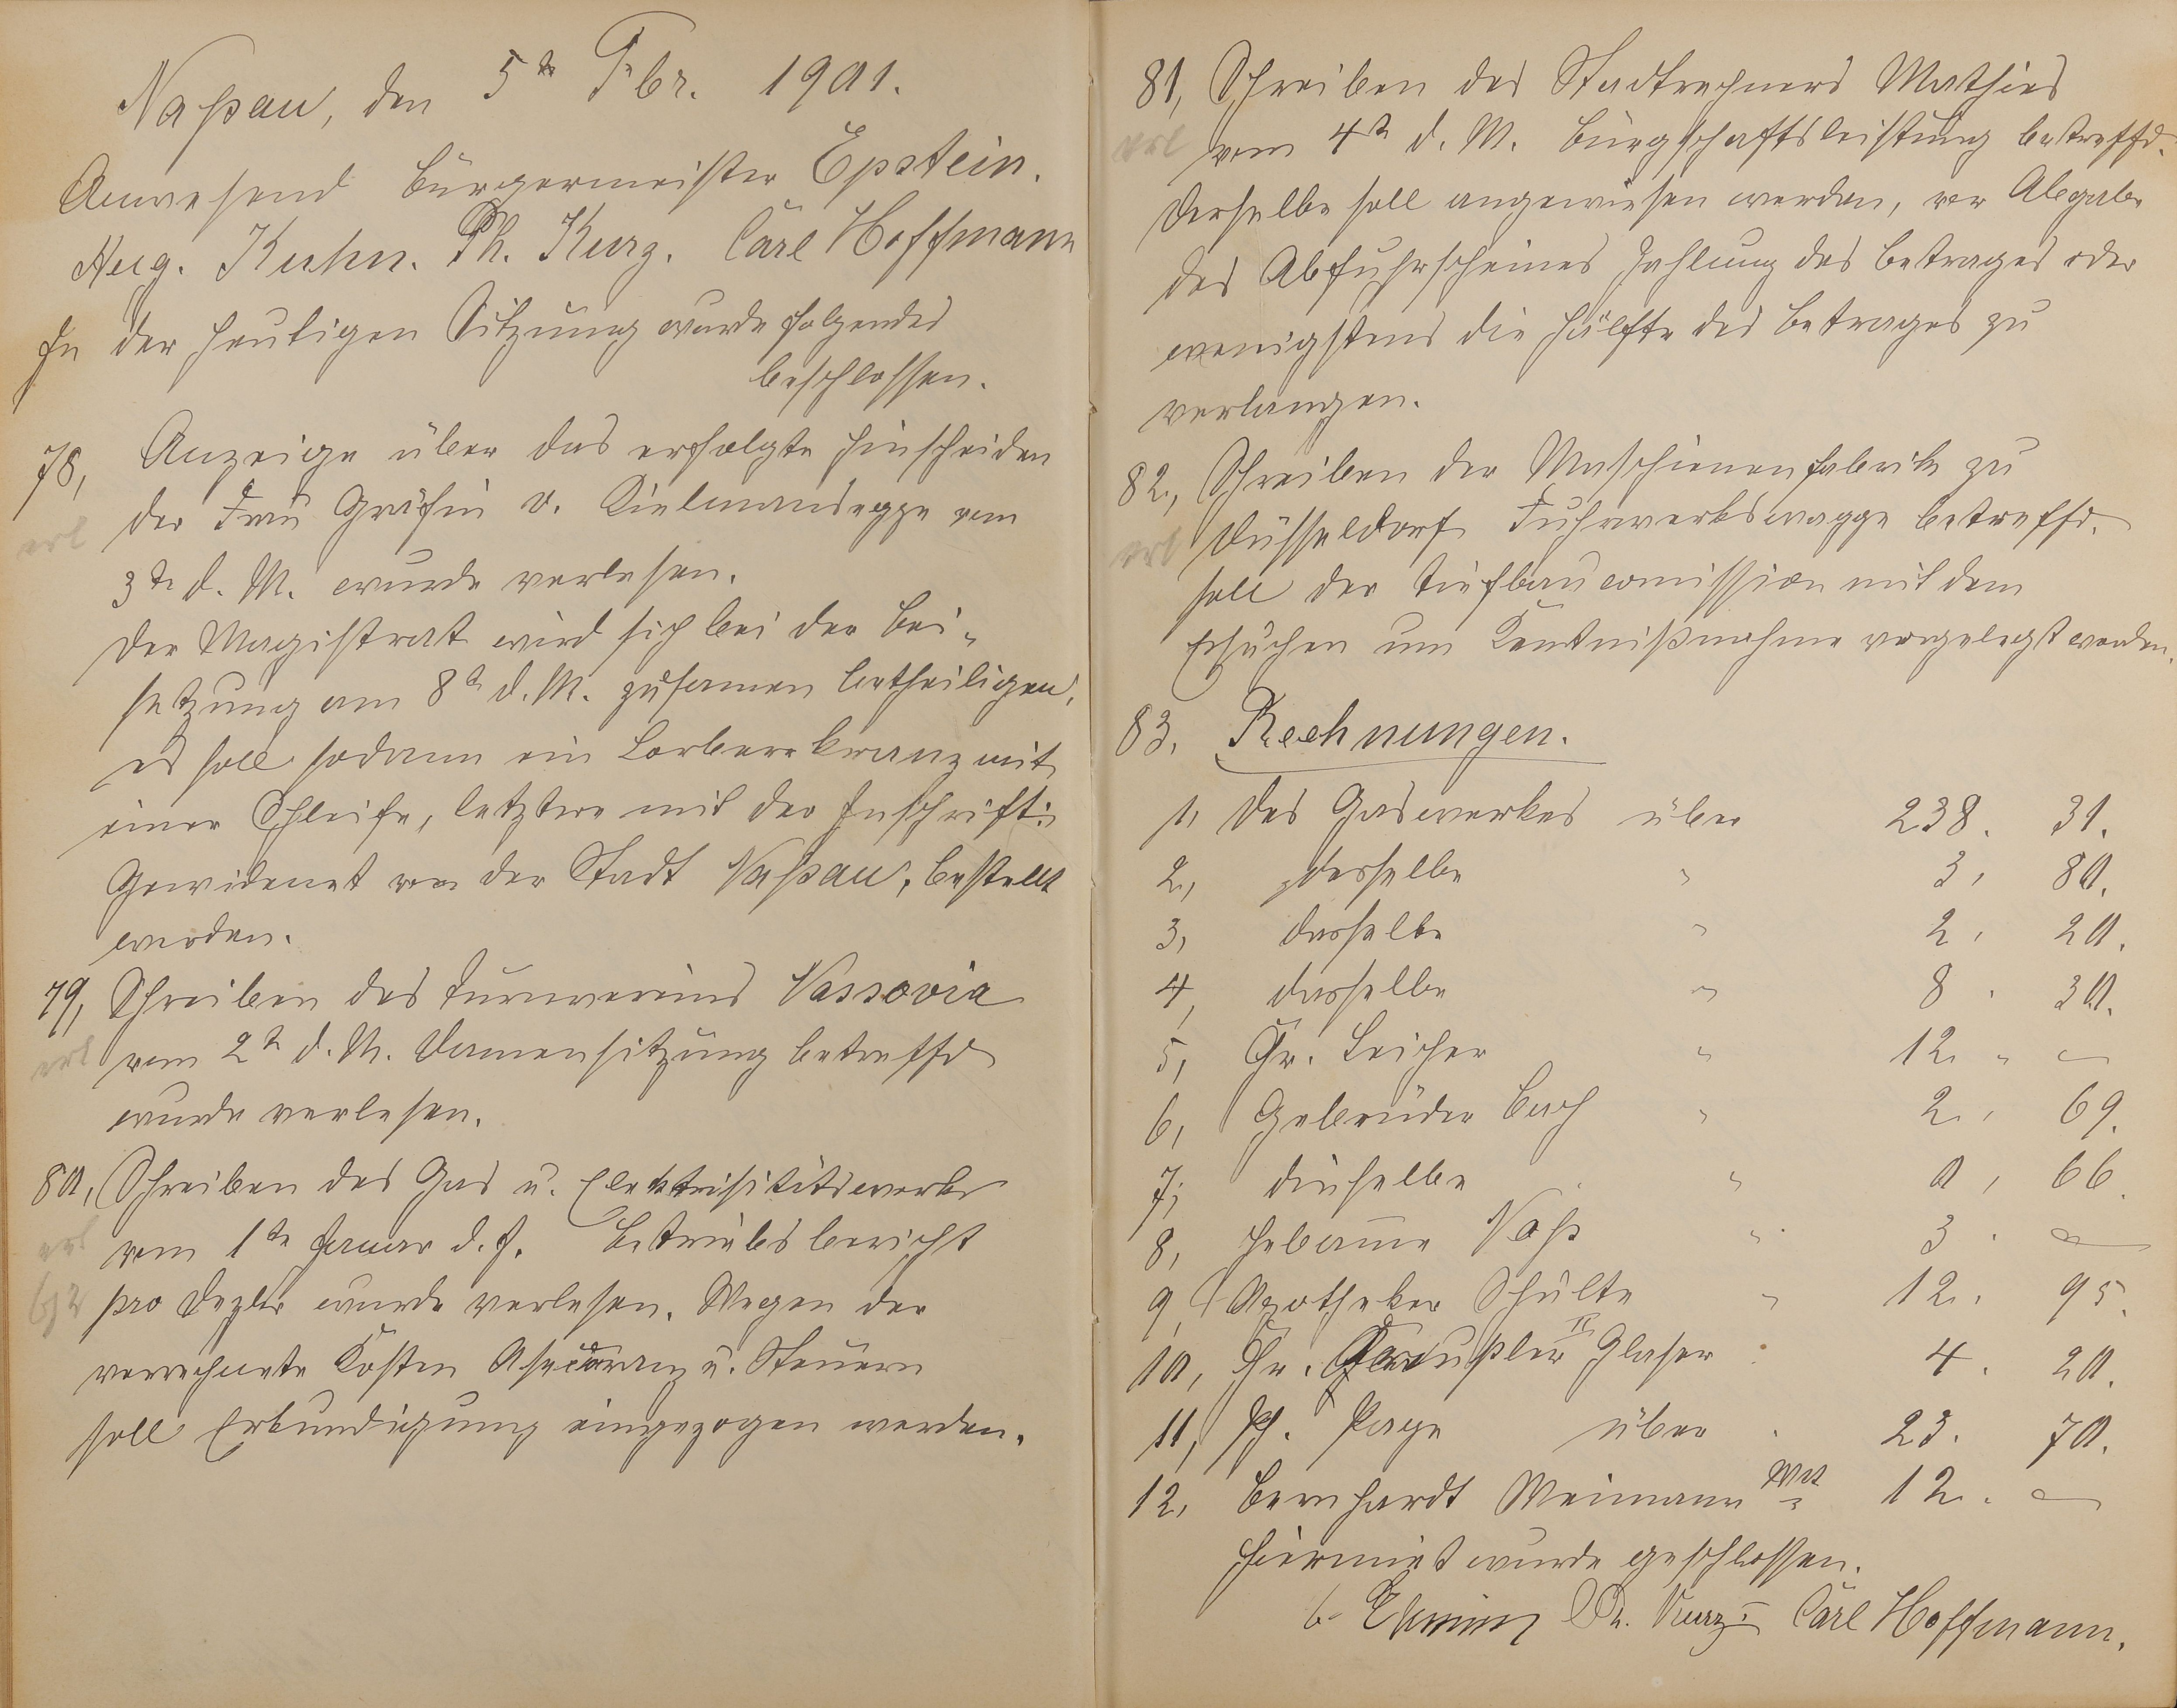 Naßau, den 5ten Fbr. 1901.
Anwesend Bürgermeister Epstein.
Aug. Kuhn. Ph. Kurz. Carl Hoffmann
In der heutigen Sitzung wurde folgendes
beschlossen.
78, Anzeige über das erfolgte Hinscheiden
erl der Frau Gräfin v. Kielmansegge vom
3ten d. M. wurde verlesen.
Der Magistrat wird sich bei der Bei-
setzung am 8ten d. M. zusamen betheiligen,
es soll sodann ein Lorbeerkranz mit
einer Schleife, letztere mit der Inschrift:
Gewidmet von der Stadt Naßau, bestellt
werden.
79, Schreiben des Turnvereins Nassovia
erl vom 2ten d. M. Damensitzung betreffd
wurde verlesen.
80, Schreiben des Gas u. Elektrisitätswerke
erl vom 1ten Januar d. J. Betriebsbericht
pro Dezbr wurde verlesen. Wegen der
verrechnete Kosten Asecoranz u. Steuern
soll Erkundigung eingezogen werden.
81, Schreiben des Stadtrechners Mathies
erl vom 4ten d. M. Bürgschaftsleistung betreffd.
Derselbe soll angewiesen werden, vor Abgabe
des Abfuhrscheines Zahlung des Betrages oder
wenigstens die Hälfte des Betrages zu
verlangen.
82, Schreiben der Maschienenfabrik zu
erl Düsseldorf Fuhrwerkswagge betreffd.
soll der Tiefbaucomission mit dem
Ersuchen um Kentnißnahme vorgelegt werden.
83. Rechnungen.
1, des Gaswerkes über 238. 31.
2, desselbe " 3, 80.
3, dasselbe " 2, 20.
4, dasselbe " 8. 30.
5, Chr. Leicher " 12. " —
6, Gebrüder Bach " 2, 69.
7, dieselbe " 0, 66.
8, Hebame Noß " 3. —
9, Apotheker Schulte " 12. 95.
10, Chr. II Glaser 4. 20.
11, Ph. Page über 23. 70.
12, Bernhardt Weimann " 12. —
Hiermiet wurde geschlossen.
Ph. Kurz Carl Hoffmann.